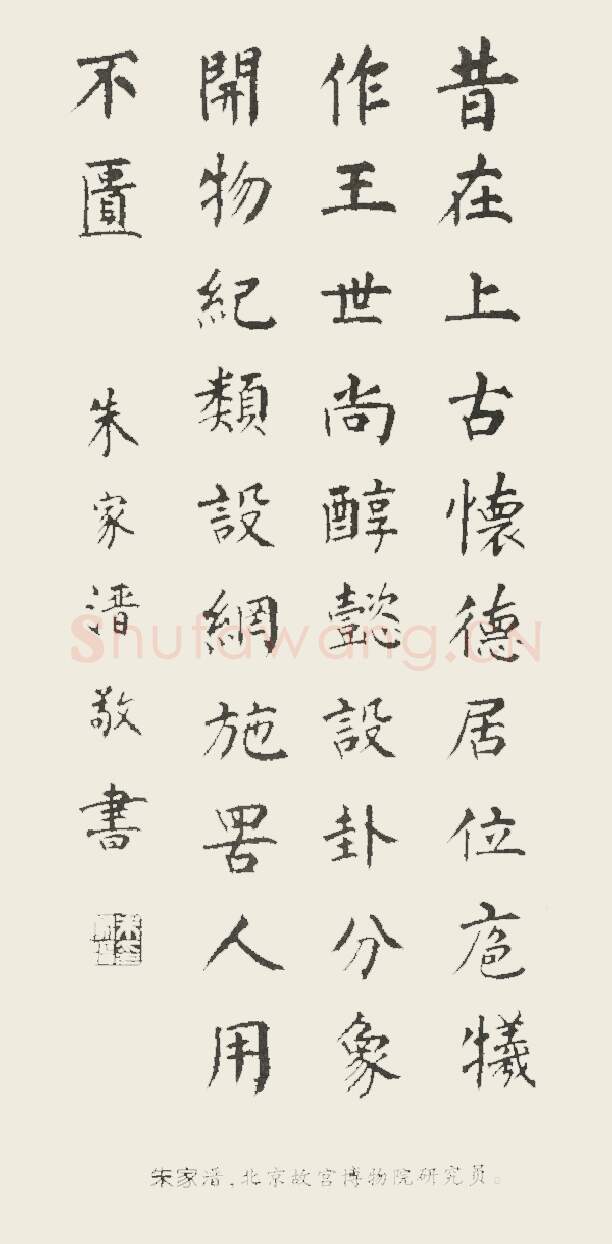 昔在上古懷德居位庖犧
作王世尚醇懿設卦分象
開物紀類設網施罟人用
不匱
朱家溍敬書
Shufawang.CN
朱家溍，北京故宫博物院研究员。